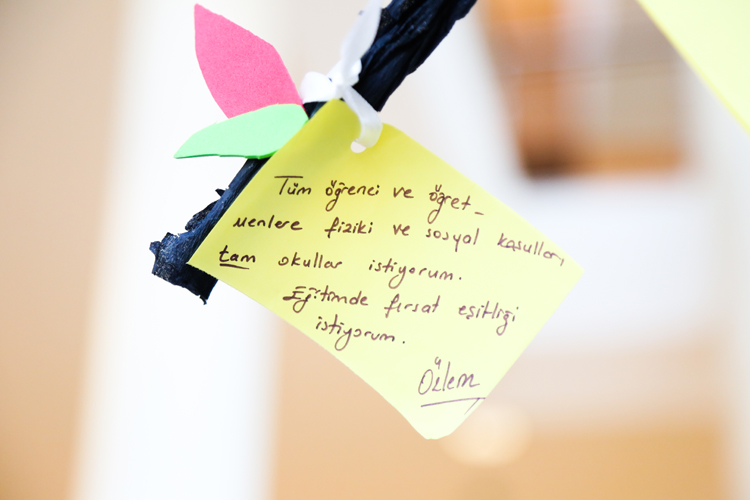 Tüm öğrenci ve öğret-
menlere fiziki ve sosyal koşulları
tam okullar istiyorum.
Eğitimde fırsat eşitliği
istiyorum.
Özlem